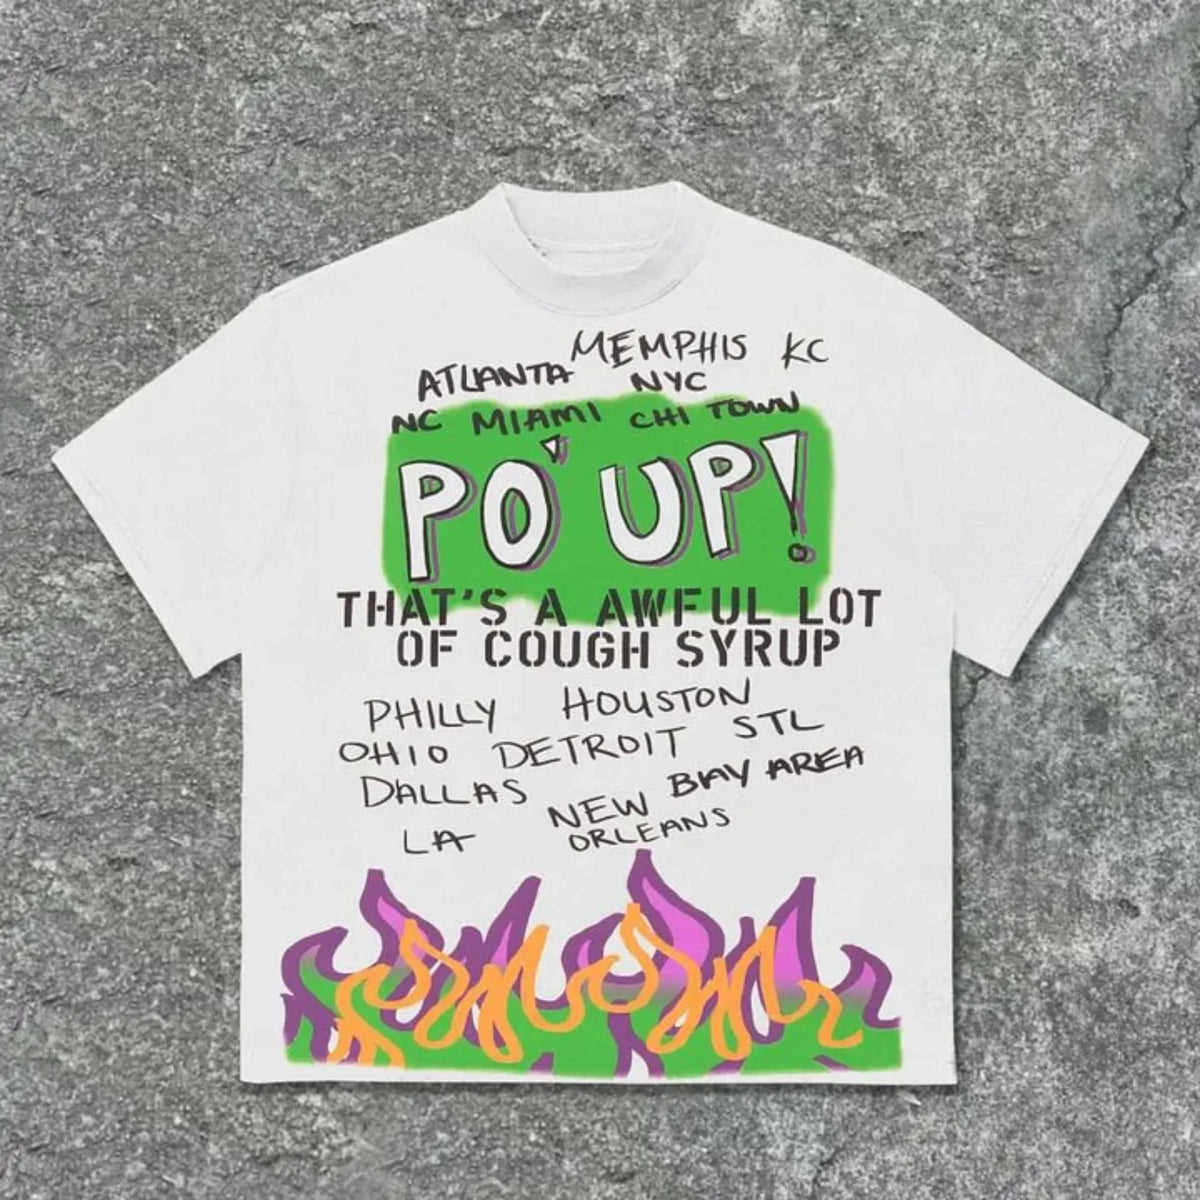 MEMPHIS KC
ATLANTA NYC
NC MIAMI CHI TOWN
PO' UP!
THAT'S A AWFUL LOT
OF COUGH SYRUP
PHILLY HOUSTON
OHIO DETROIT STL
DALLAS BAY AREA
LA NEW
ORLEANS